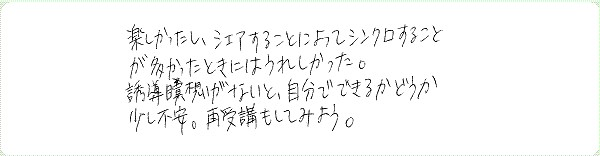 楽しかったし、シェアすることによってシンクロすること
が多かったときにはうれしかった。
誘導瞑想がないと、自分でできるかどうか
少し不安。再受講もしてみよう。